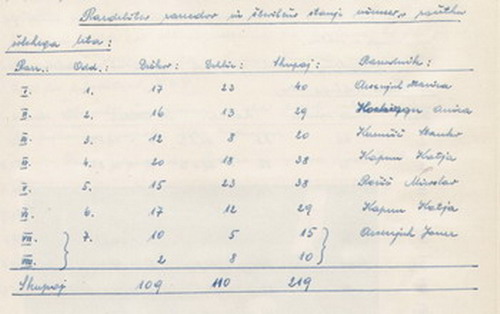 Razdelitev razredov in številčno stanje učencev, pričetku
šolskega leta:
Razr.: Odd.: Dečkov: Deklic: Skupaj: Razrednik:
I. 1. 17 23 40 Marica
II. 2. 16 13 29 Anica
III. 3. 12 8 20 Stanko
IV. 4. 20 18 38 Kapun Katja
V. 5. 15 23 38 Miroslav
VI. 6. 17 12 29 Kapun Katja
VII. 7. 10 5 15 Janez
VIII. 2 8 10
Skupaj 109 110 219